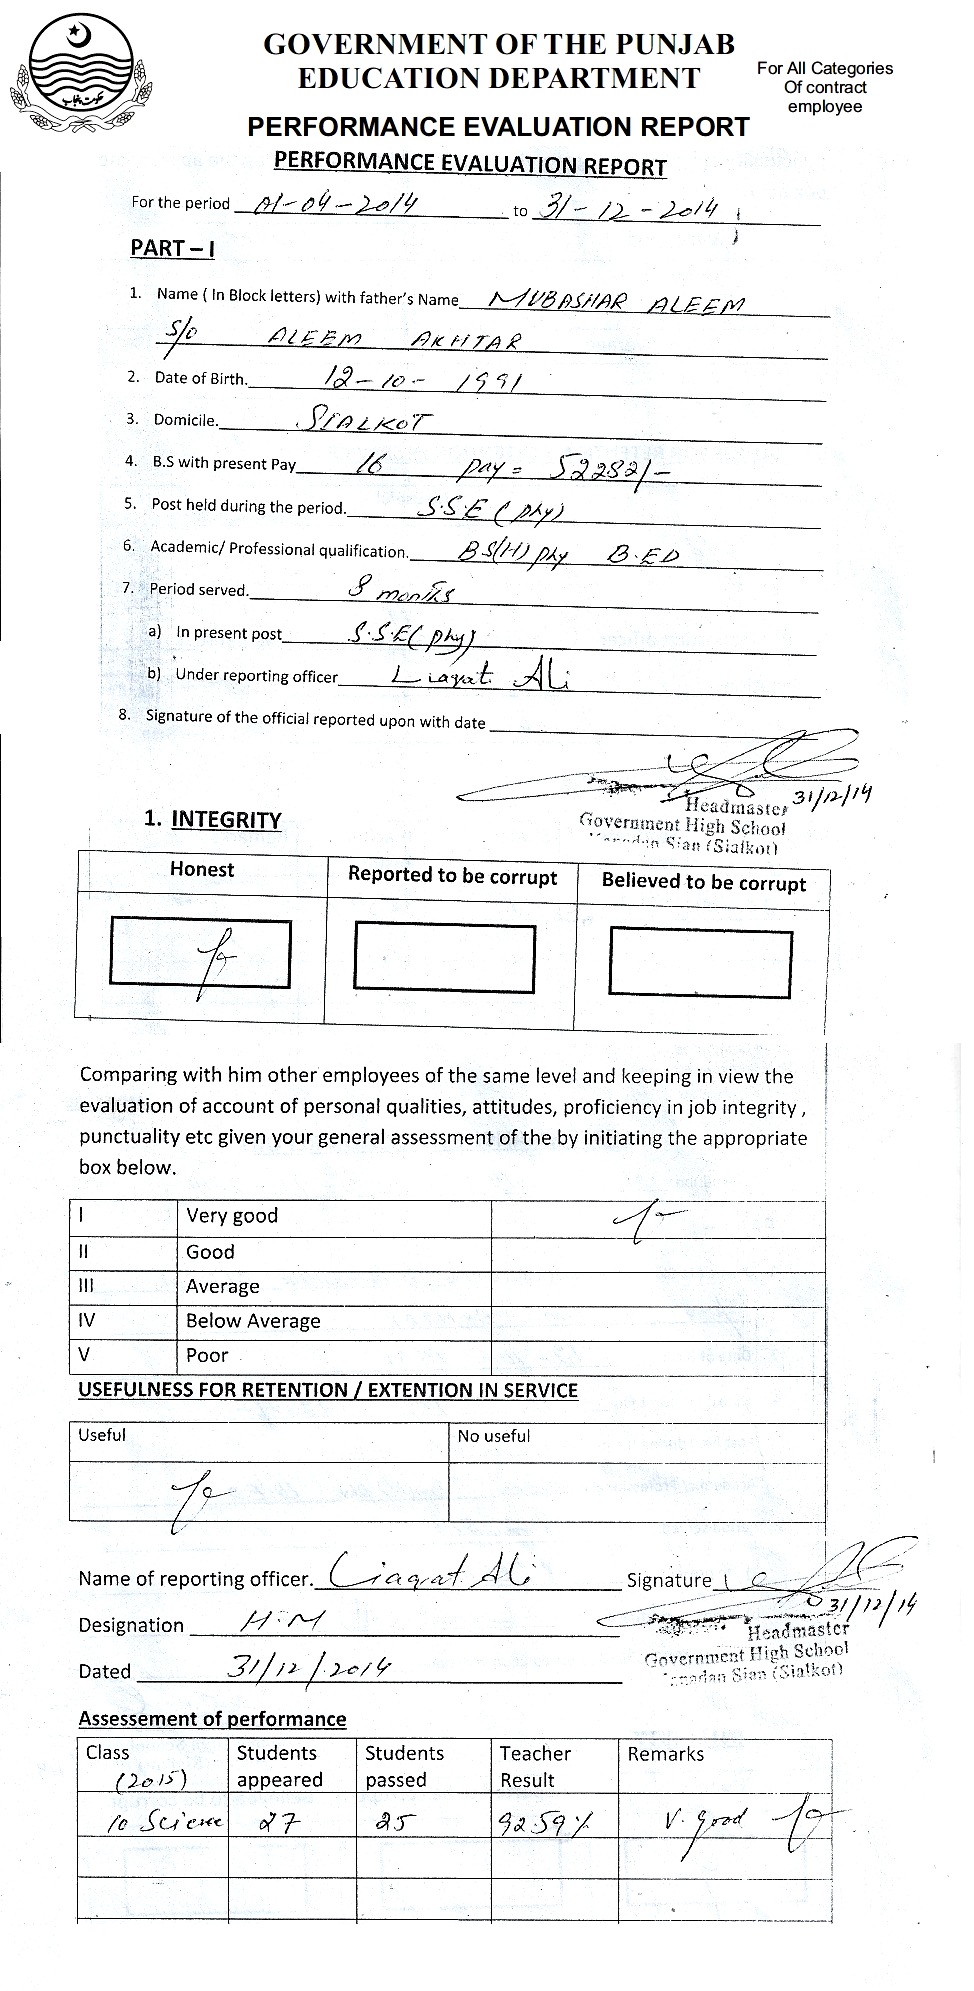 حکومت پنجاب
GOVERNMENT OF THE PUNJAB
EDUCATION DEPARTMENT
For All Categories
Of contract
employee
PERFORMANCE EVALUATION REPORT
PERFORMANCE EVALUATION REPORT
For the period 01-04-2014 to 31-12-2014
PART – I
1. Name ( In Block letters) with father's Name MUBASHAR ALEEM
S/O ALEEM AKHTAR
2. Date of Birth. 12-10-1991
3. Domicile. SIALKOT
4. B.S with present Pay 16 pay = 52282/-
5. Post held during the period. S.S.E ( phy)
6. Academic/ Professional qualification. BS(H) phy B.ED
7. Period served. 8 months
a) In present post S.S.E( phy)
b) Under reporting officer Liaqat Ali
8. Signature of the official reported upon with date
31/12/14
Headmaster
Government High School
Sian (Sialkot)
1. INTEGRITY
Honest Reported to be corrupt Believed to be corrupt
Comparing with him other employees of the same level and keeping in view the
evaluation of account of personal qualities, attitudes, proficiency in job integrity ,
punctuality etc given your general assessment of the by initiating the appropriate
box below.
I Very good
II Good
III Average
IV Below Average
V Poor
USEFULNESS FOR RETENTION / EXTENTION IN SERVICE
Useful No useful
Name of reporting officer. Liaqat Ali Signature
31/12/14
Designation H.M
Headmaster
Government High School
Sian (Sialkot)
Dated 31/12/2014
Assessement of performance
Class Students Students Teacher Remarks
(2015) appeared passed Result
10 Science 27 25 92.59% V. good